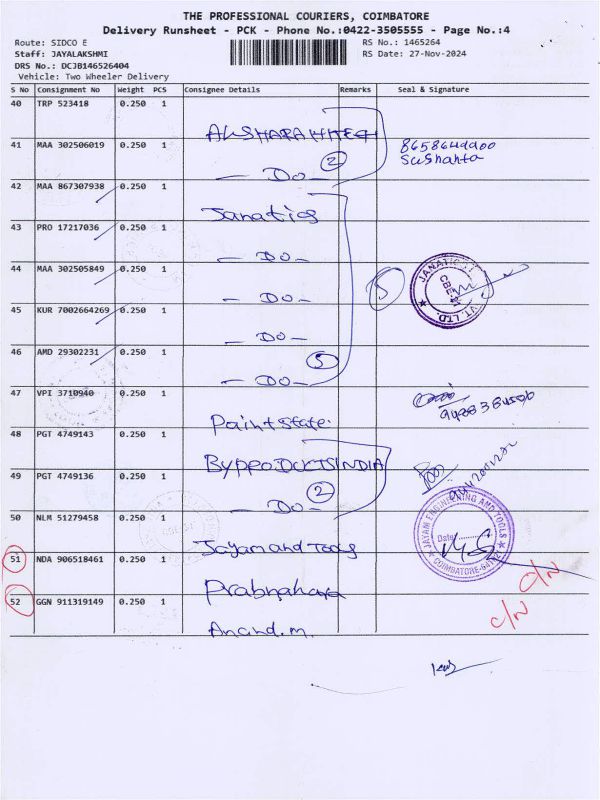 THE PROFESSIONAL COURIERS, COIMBATORE
Delivery Runsheet - PCK - Phone No.:0422-3505555 - Page No.:4
Route: SIDCO E RS No.: 1465264
Staff: JAYALAKSHMI RS Date: 27-Nov-2024
DRS No.: DCJB146526404
Vehicle: Two Wheeler Delivery
S No Consignment No Weight PCS Consignee Details Remarks Seal & Signature
40 TRP 523418 0.250 1
AKSHARA HITECH
41 MAA 302506019 0.250 1 8658644200
Sushanta
- Do - 2
42 MAA 867307938 0.250 1
Janatics
43 PRO 17217036 0.250 1
- Do -
44 MAA 302505849 0.250 1 5
- Do -
45 KUR 7002664269 0.250 1
- Do -
46 AMD 29302231 0.250 1 5
- Do -
47 VPI 3710940 0.250 1
Paint state
48 PGT 4749143 0.250 1
BYPPRODUCTSINDIA
49 PGT 4749136 0.250 1
- Do - 2
50 NLM 51279458 0.250 1
JAYAM ENGINEERING AND TOOLS
Date:
COIMBATORE-641021
Jayam and Tools
51 NDA 906518461 0.250 1
Prabhahara
C/N
52 GGN 911319149 0.250 1
C/N
Anand.m.